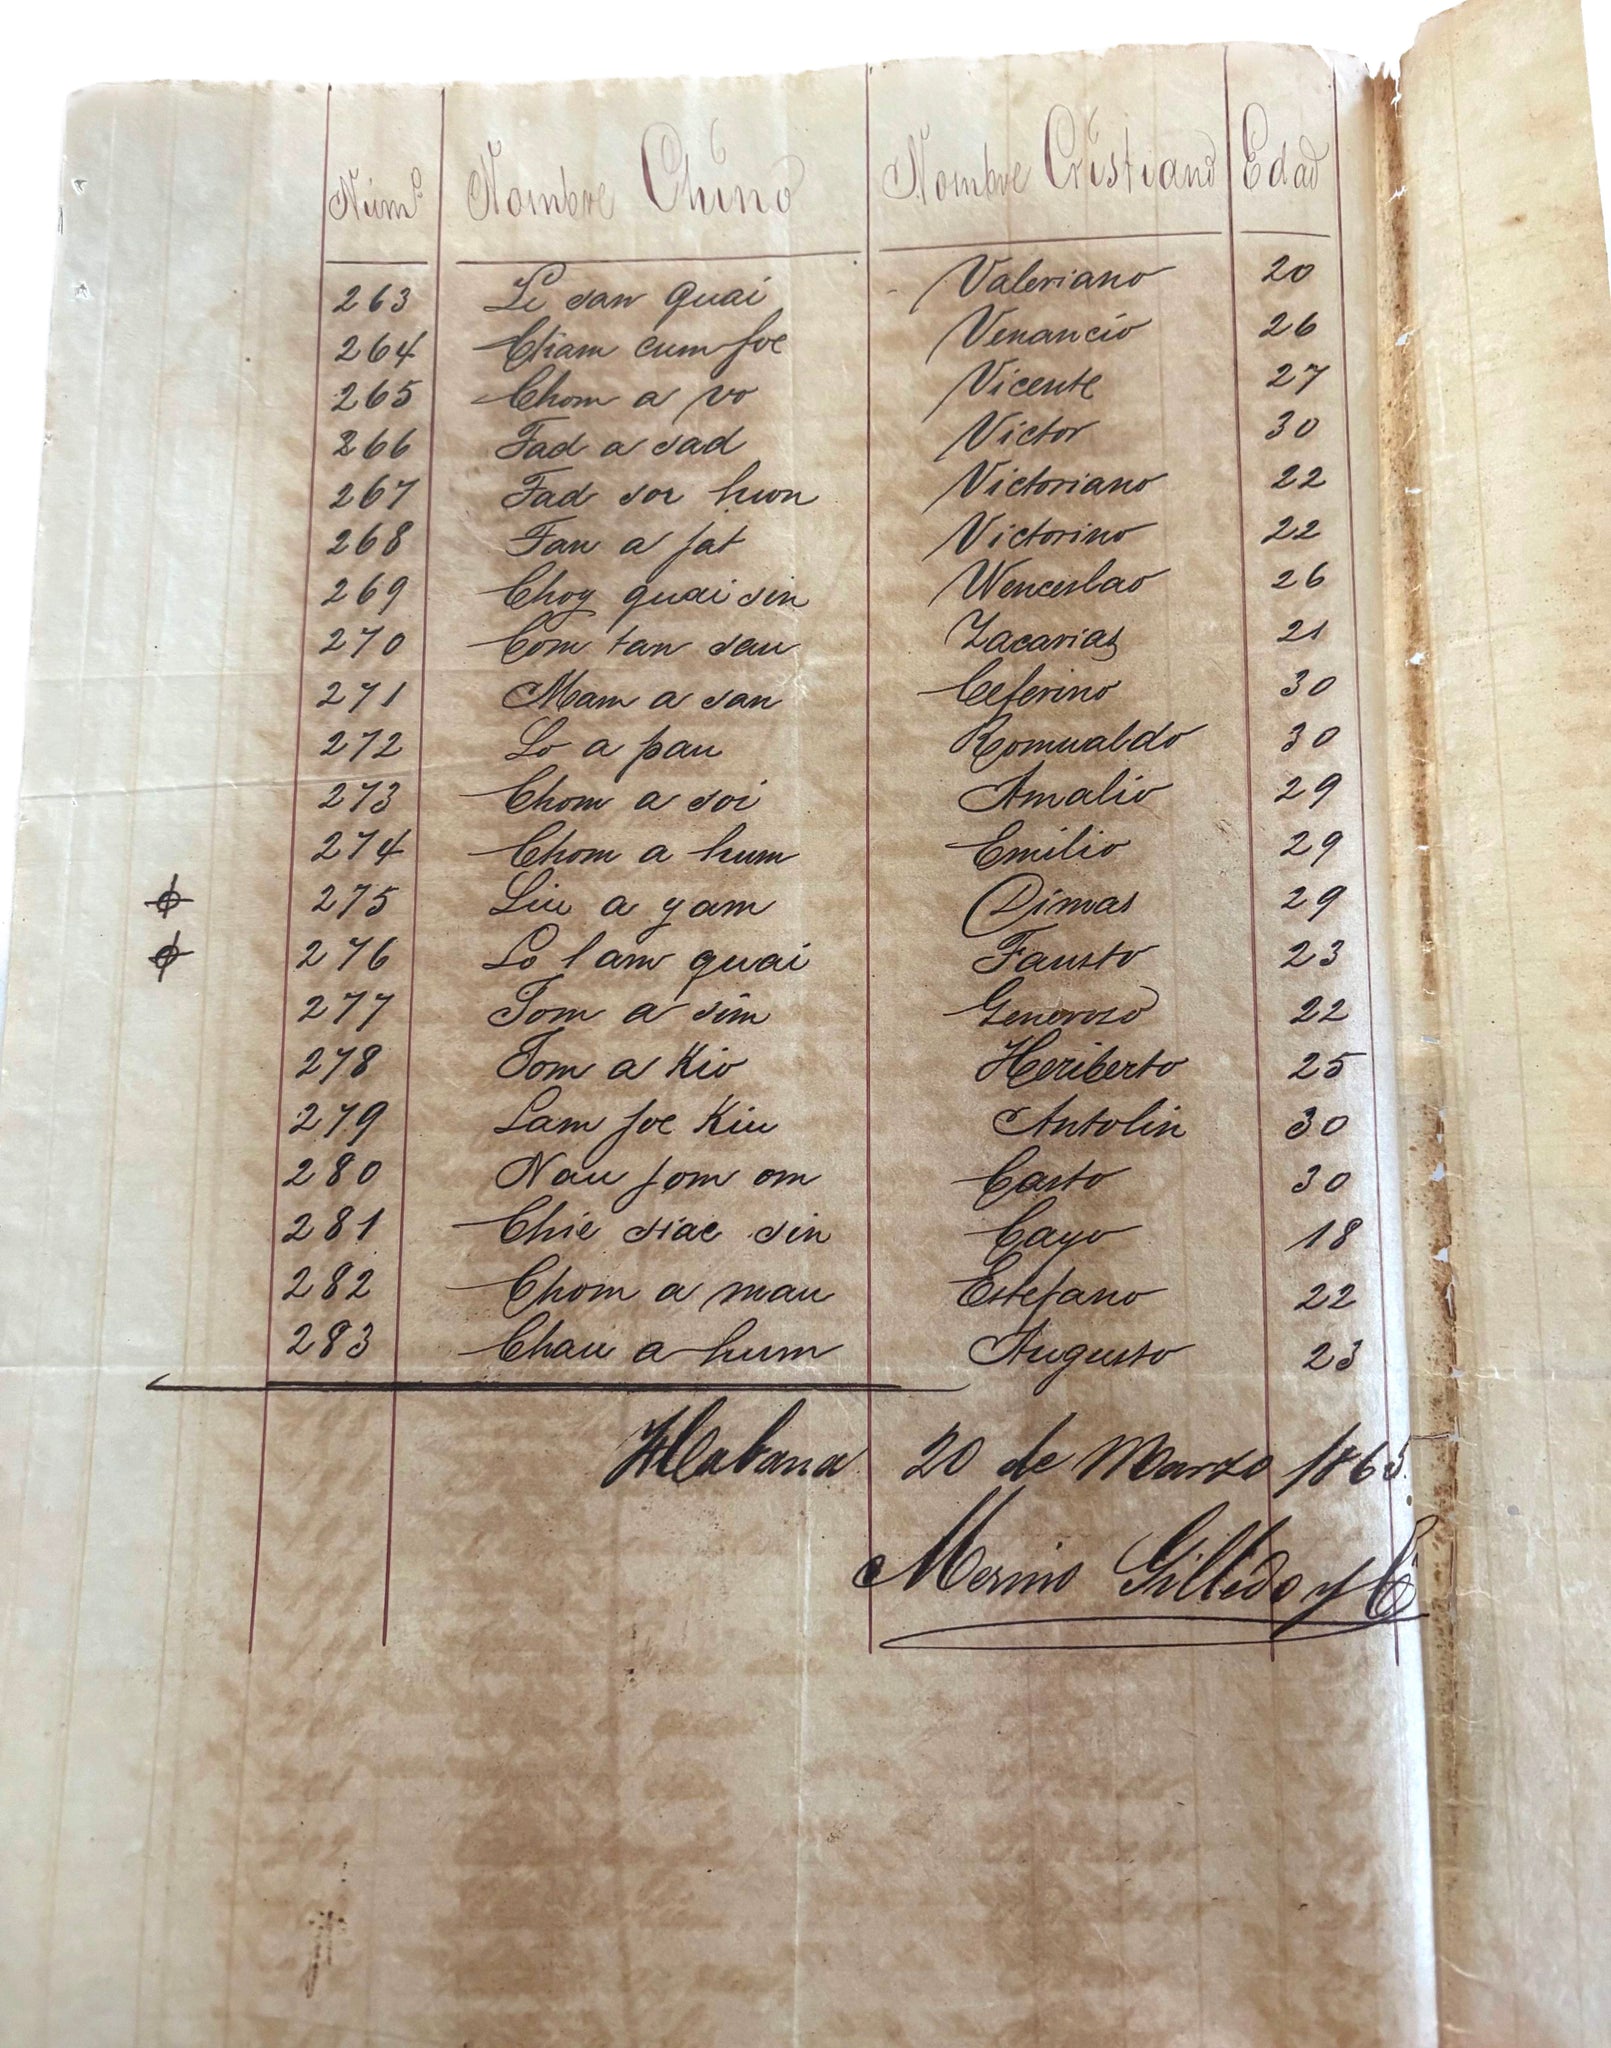 Núm.º Nombre Chino Nombre Cristiano Edad
263 Le san quai Valeriano 20
264 Cham cum foe Venancio 26
265 Chom a vo Vicente 27
266 Fad a sad Victor 30
267 Fad soe hion Victoriano 22
268 Fan a fat Victorino 22
269 Choy quai sin Wenceslao 26
270 Com tan sau Zacarias 21
271 Mam a san Ceferino 30
272 Lo a pau Romualdo 30
273 Chom a soi Amalio 29
274 Chom a hum Emilio 29
275 Liu a yam Dimas 29
276 Lo lam quai Fausto 23
277 Tom a sim Generoso 22
278 Tom a Kio Heriberto 25
279 Lam foe Kiu Antolin 30
280 Nau fom om Casto 30
281 Chie siac sin Cayo 18
282 Chom a mau Estefano 22
283 Chau a hum Augusto 23
Habana 20 de Marzo 1865.
Merino Gilledo y C